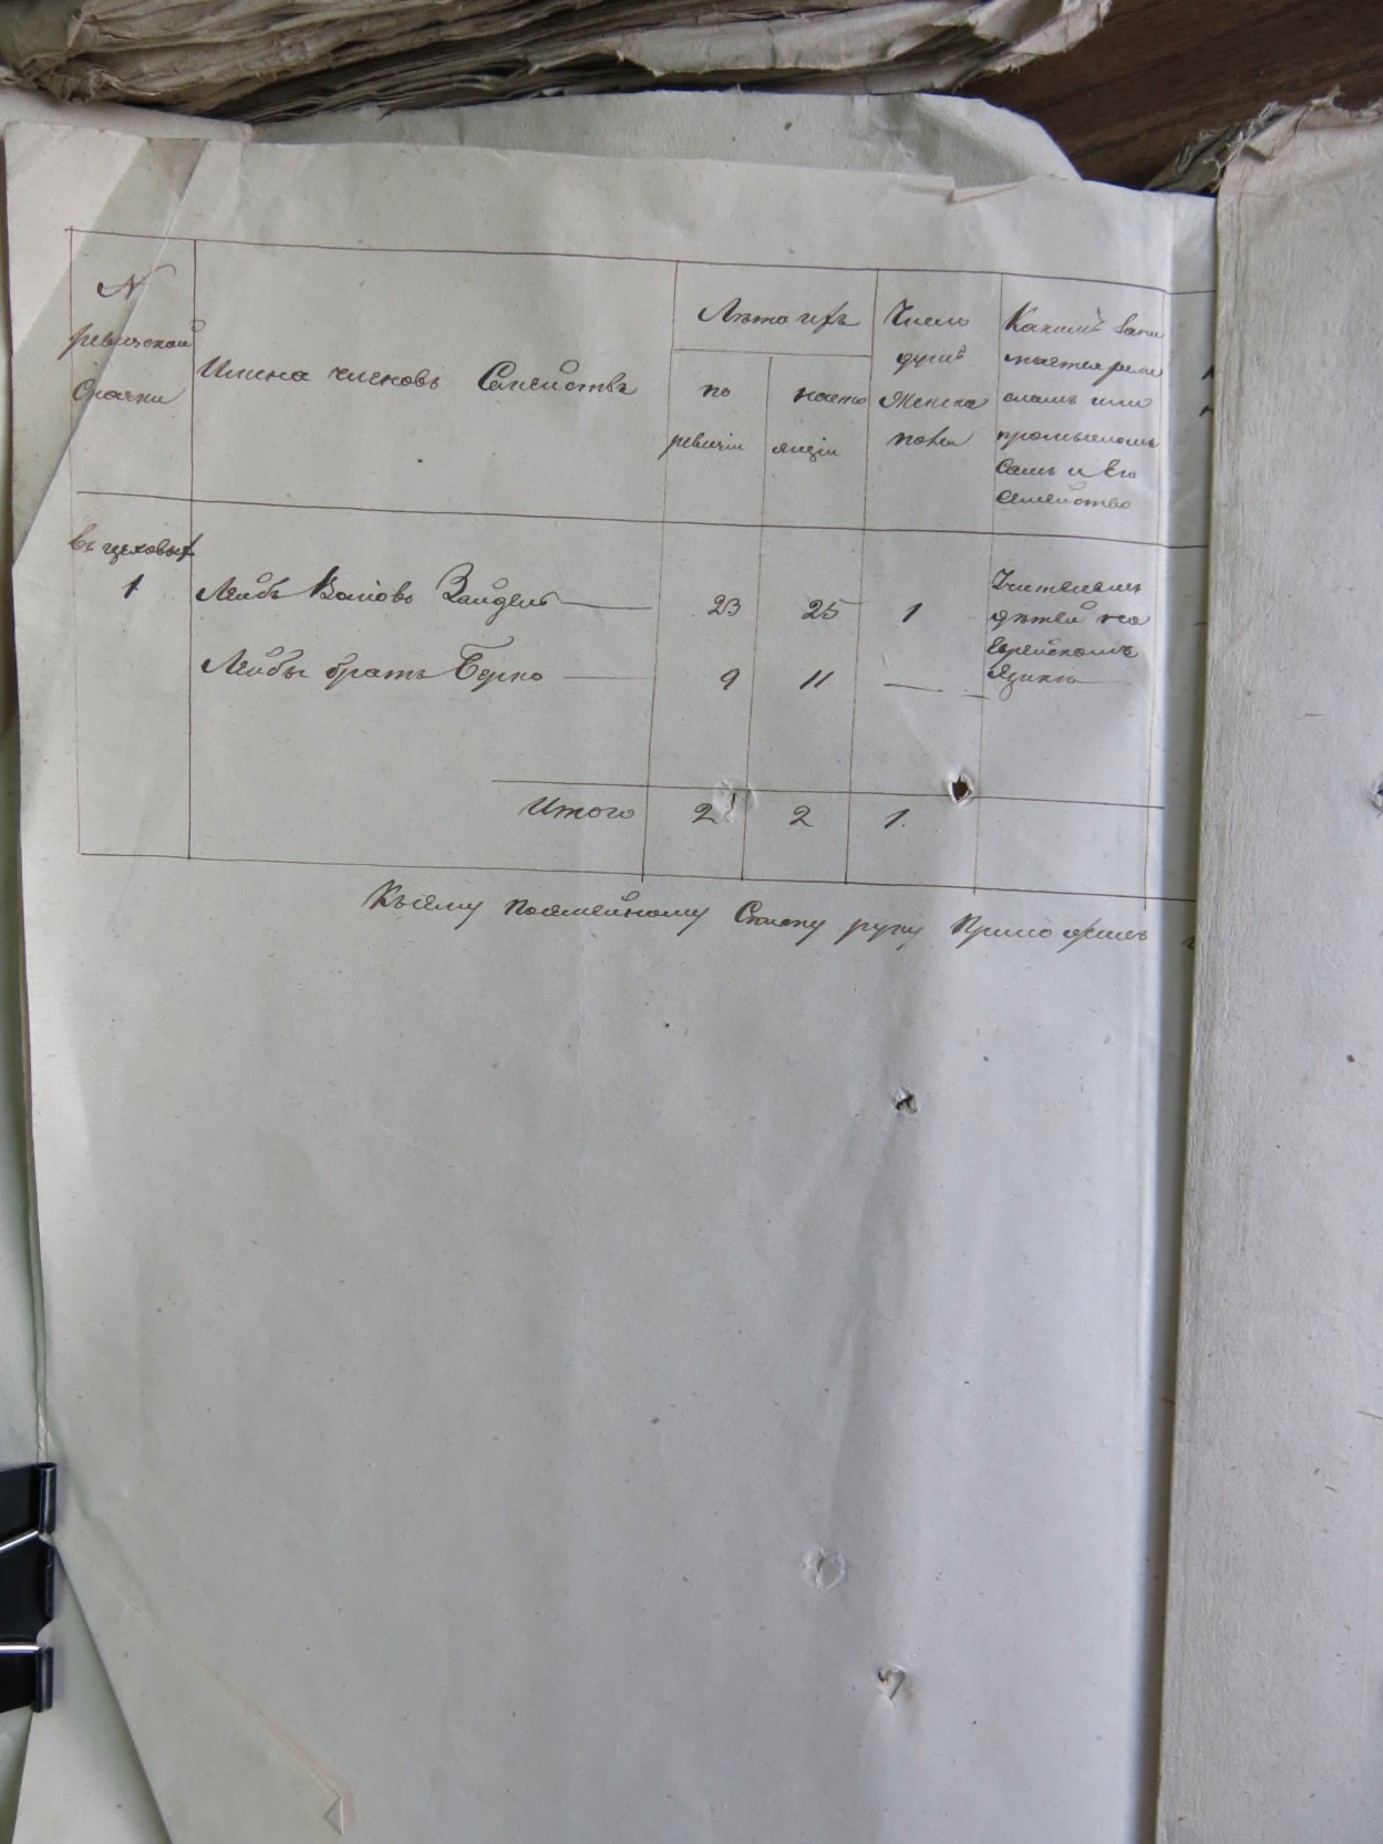 N ревизской сказки
Имена членовъ Семействъ
Лѣта ихъ
по ревизіи
насто ящіи
Число душъ Женска пола
Какимъ Зани мается реме сломъ или промысломъ Самъ и Его Семейство
въ цеховыхъ
1 Лейбъ Вольовъ Зайдель 23 25 1 Учителемъ дѣтей на Еврейскомъ Языкѣ
Лейбы братъ Берко 9 11 —
Итого 2 2 1.
Къ сему посемейному Списку руку Приложилъ